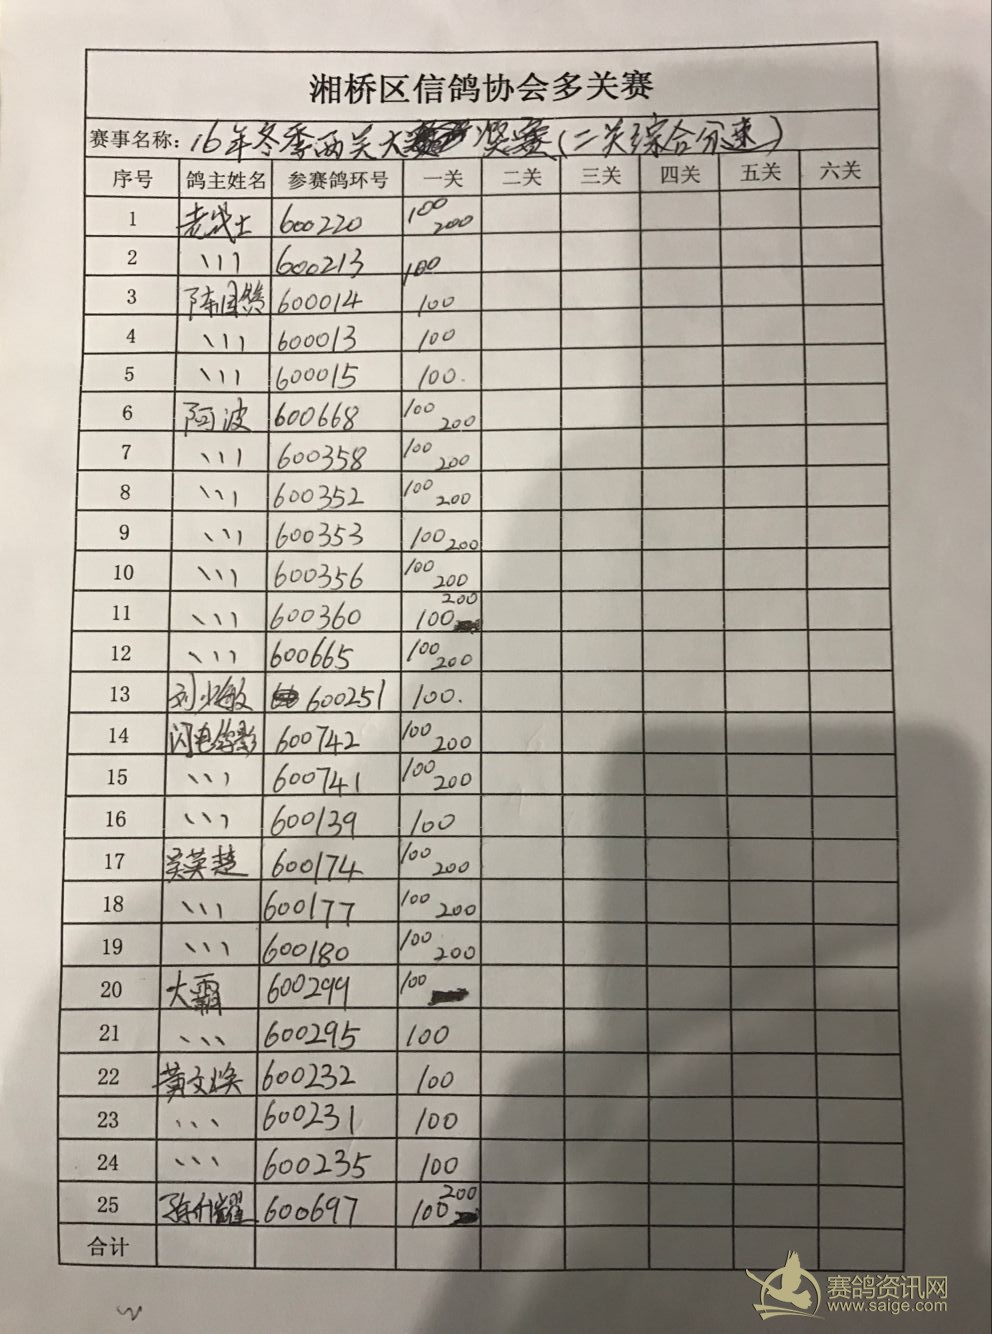 湘桥区信鸽协会多关赛
赛事名称: 16年冬季两关大奖赛(二关综合分速)
序号 鸽主姓名 参赛鸽环号 一关 二关 三关 四关 五关 六关
1 老战士 600220 100 200
2 、、、 600213 100
3 600014 100
4 、、、 600013 100
5 、、、 600015 100.
6 阿波 600668 100 200
7 、、、 600358 100 200
8 、、、 600352 100 200
9 、、、 600353 100 200
10 、、、 600356 100 200
11 、、、 600360 100 200
12 、、、 600665 100 200
13 刘少敏 600251 100.
14 闪电 600742 100 200
15 、、、 600741 100 200
16 、、、 600139 100
17 吴英楚 600174 100 200
18 、、、 600177 100 200
19 、、、 600180 100 200
20 大霸 600299 100
21 、、、 600295 100
22 黄文焕 600232 100
23 、、、 600231 100
24 、、、 600235 100
25 600697 100 200
合计
赛鸽资讯网
www.saige.com